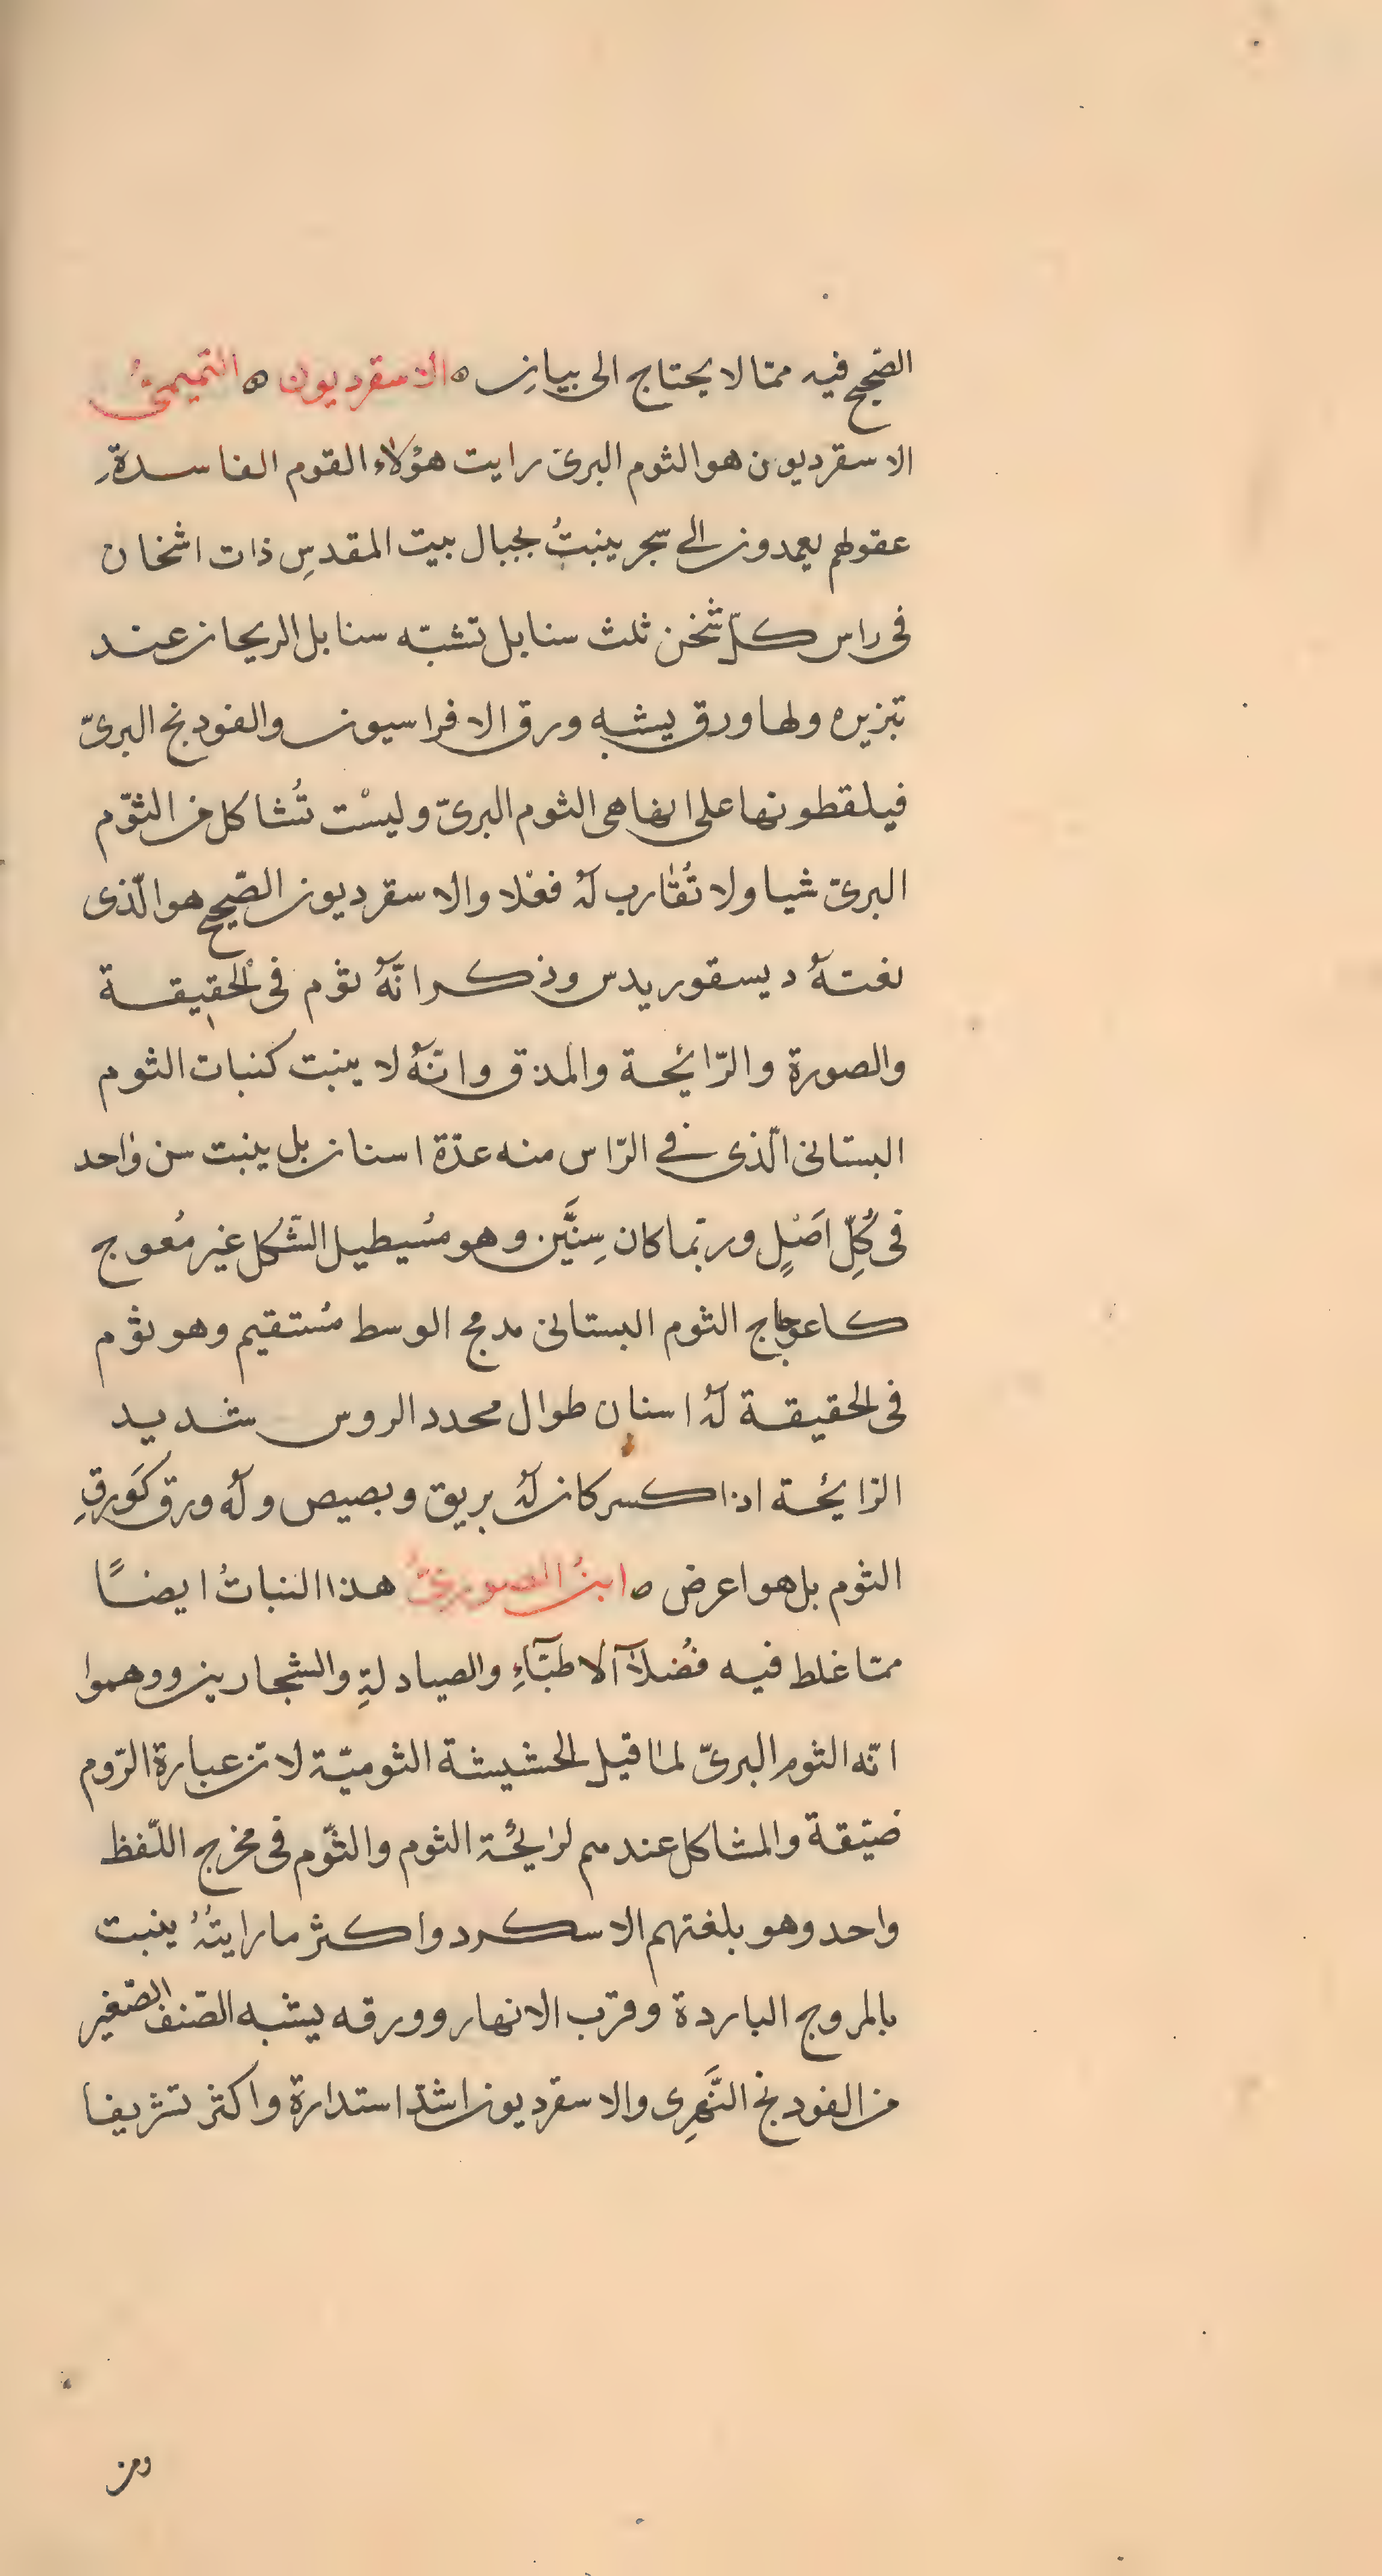 الصّحيح فيه ممّا لا يحتاج الى بيانٍ ٥ الاسقرديون ٥ التّميمىُّ
الاسقرديون هو الثوم البرى رايت هؤلاء القوم الفاسدةِ
عقولهم يعمدون الى سجر ينبتُ بجبال بيت المقدسِ ذات اشخان
فى راس كلّ شخن ثلث سنابل تشبّه سنابل الريحان عند
تبزيره ولها ورق يشبه ورق الافراسيون والفودنج البرىّ
فيلقطونها على انها هى الثوم البرىّ وليسْت تُشاكل من الثوّم
البرىّ شيا ولا تُقارب لهُ فعْلا والاسقرديون الصّحيح هو الّذى
نعتهُ ديسقوريدس وذكر انّهُ ثوم فى الحقيقة
والصورة والرّائحة والمذق وانّهُ لا ينبت كنبات الثوم
البستانى الّذى فى الرّاس منه عدّة اسنان بل ينبت سن واحد
فى كُلِّ اَصْلٍ وربّما كان سِنَّين وهو مُسيطيل الشّكل غير مُعوج
كاعوجاج الثوم البستانى مدمج الوسط مُستقيم وهو ثوم
فى الحقيقة لهُ اسنان طوال محدد الروس شديد
الرّائحة اذا كسر كان لهُ بريق وبصيص ولهُ ورق كَورقِ
الثوم بل هو اعرض ٥ ابنُ الصورىُّ هذا النباتُ ايضًا
ممّا غلط فيه فُضلآ الاطبّآءِ والصيادلةِ والشجارين ووهموا
انّه الثوم البرىّ لما قيل الحشيشة الثوميّة لانّ عبارة الرّوم
ضيّقة والمشاكل عندهم لرايحة الثوم والثوّم فى مخرج اللّفظ
واحد وهو بلغتهم الاسكرد واكثر ما رايتُهُ ينبت
بالمروج الباردة وقرب الانهار وورقه يشبه الصّنف الصّغير
من الفودنج النَّهرِى والاسقرديون اشدّ استدارة واكثر تشريفا
ومن